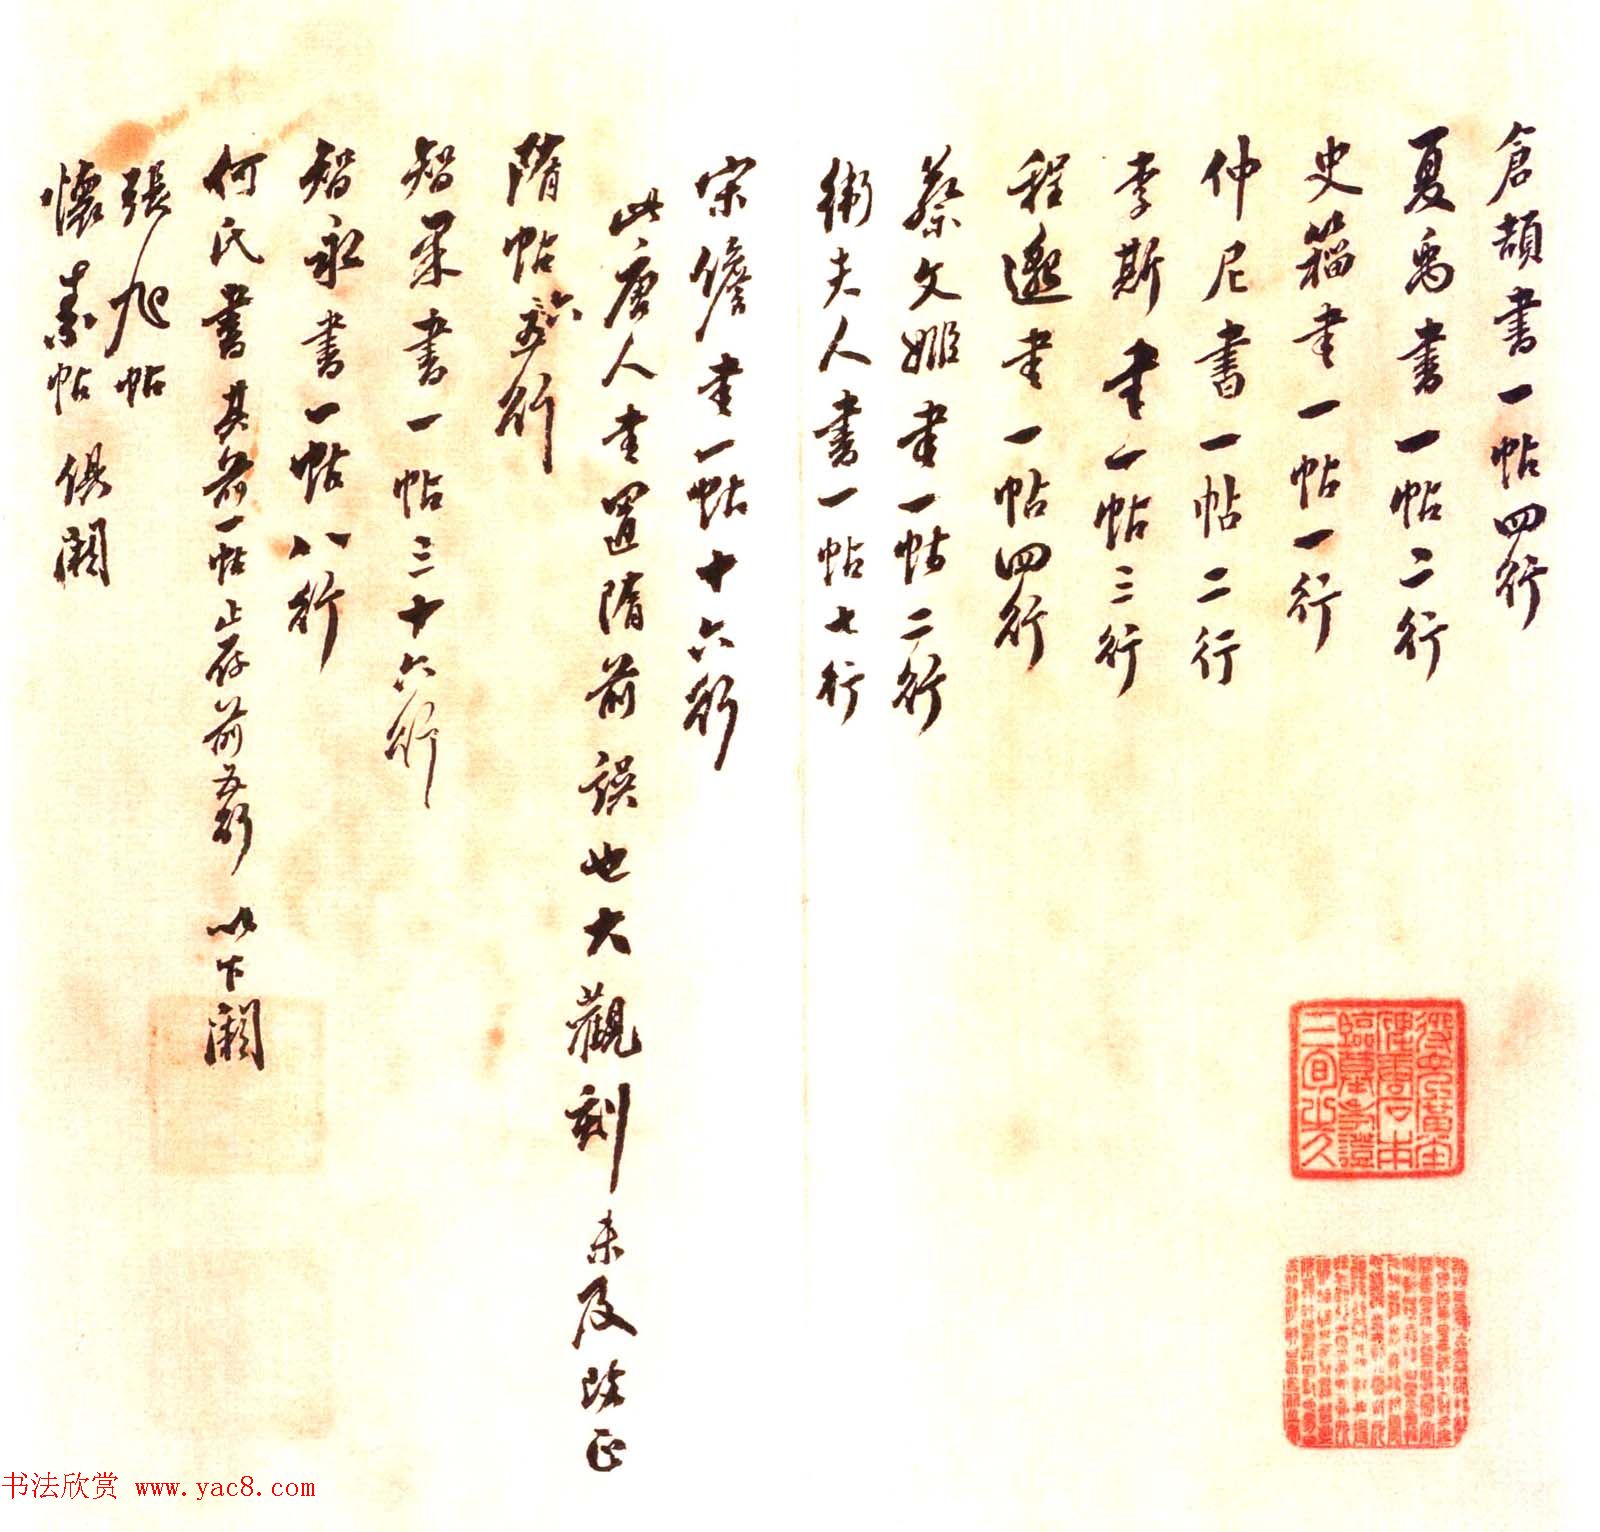 倉頡書一帖四行
夏禹書一帖二行
史籀書一帖一行
仲尼書一帖二行
李斯書一帖三行
程邈書一帖四行
蔡文姬書一帖二行
衛夫人書一帖七行
宋儋書一帖十六行
此唐人書置隋前誤也大觀刻未及改正
隋帖五六行
智果書一帖三十六行
智永書一帖八行
何氏書其前一帖止存前五行 以下闕
張旭帖
懷素帖 俱闕
书法欣赏 www.yac8.com